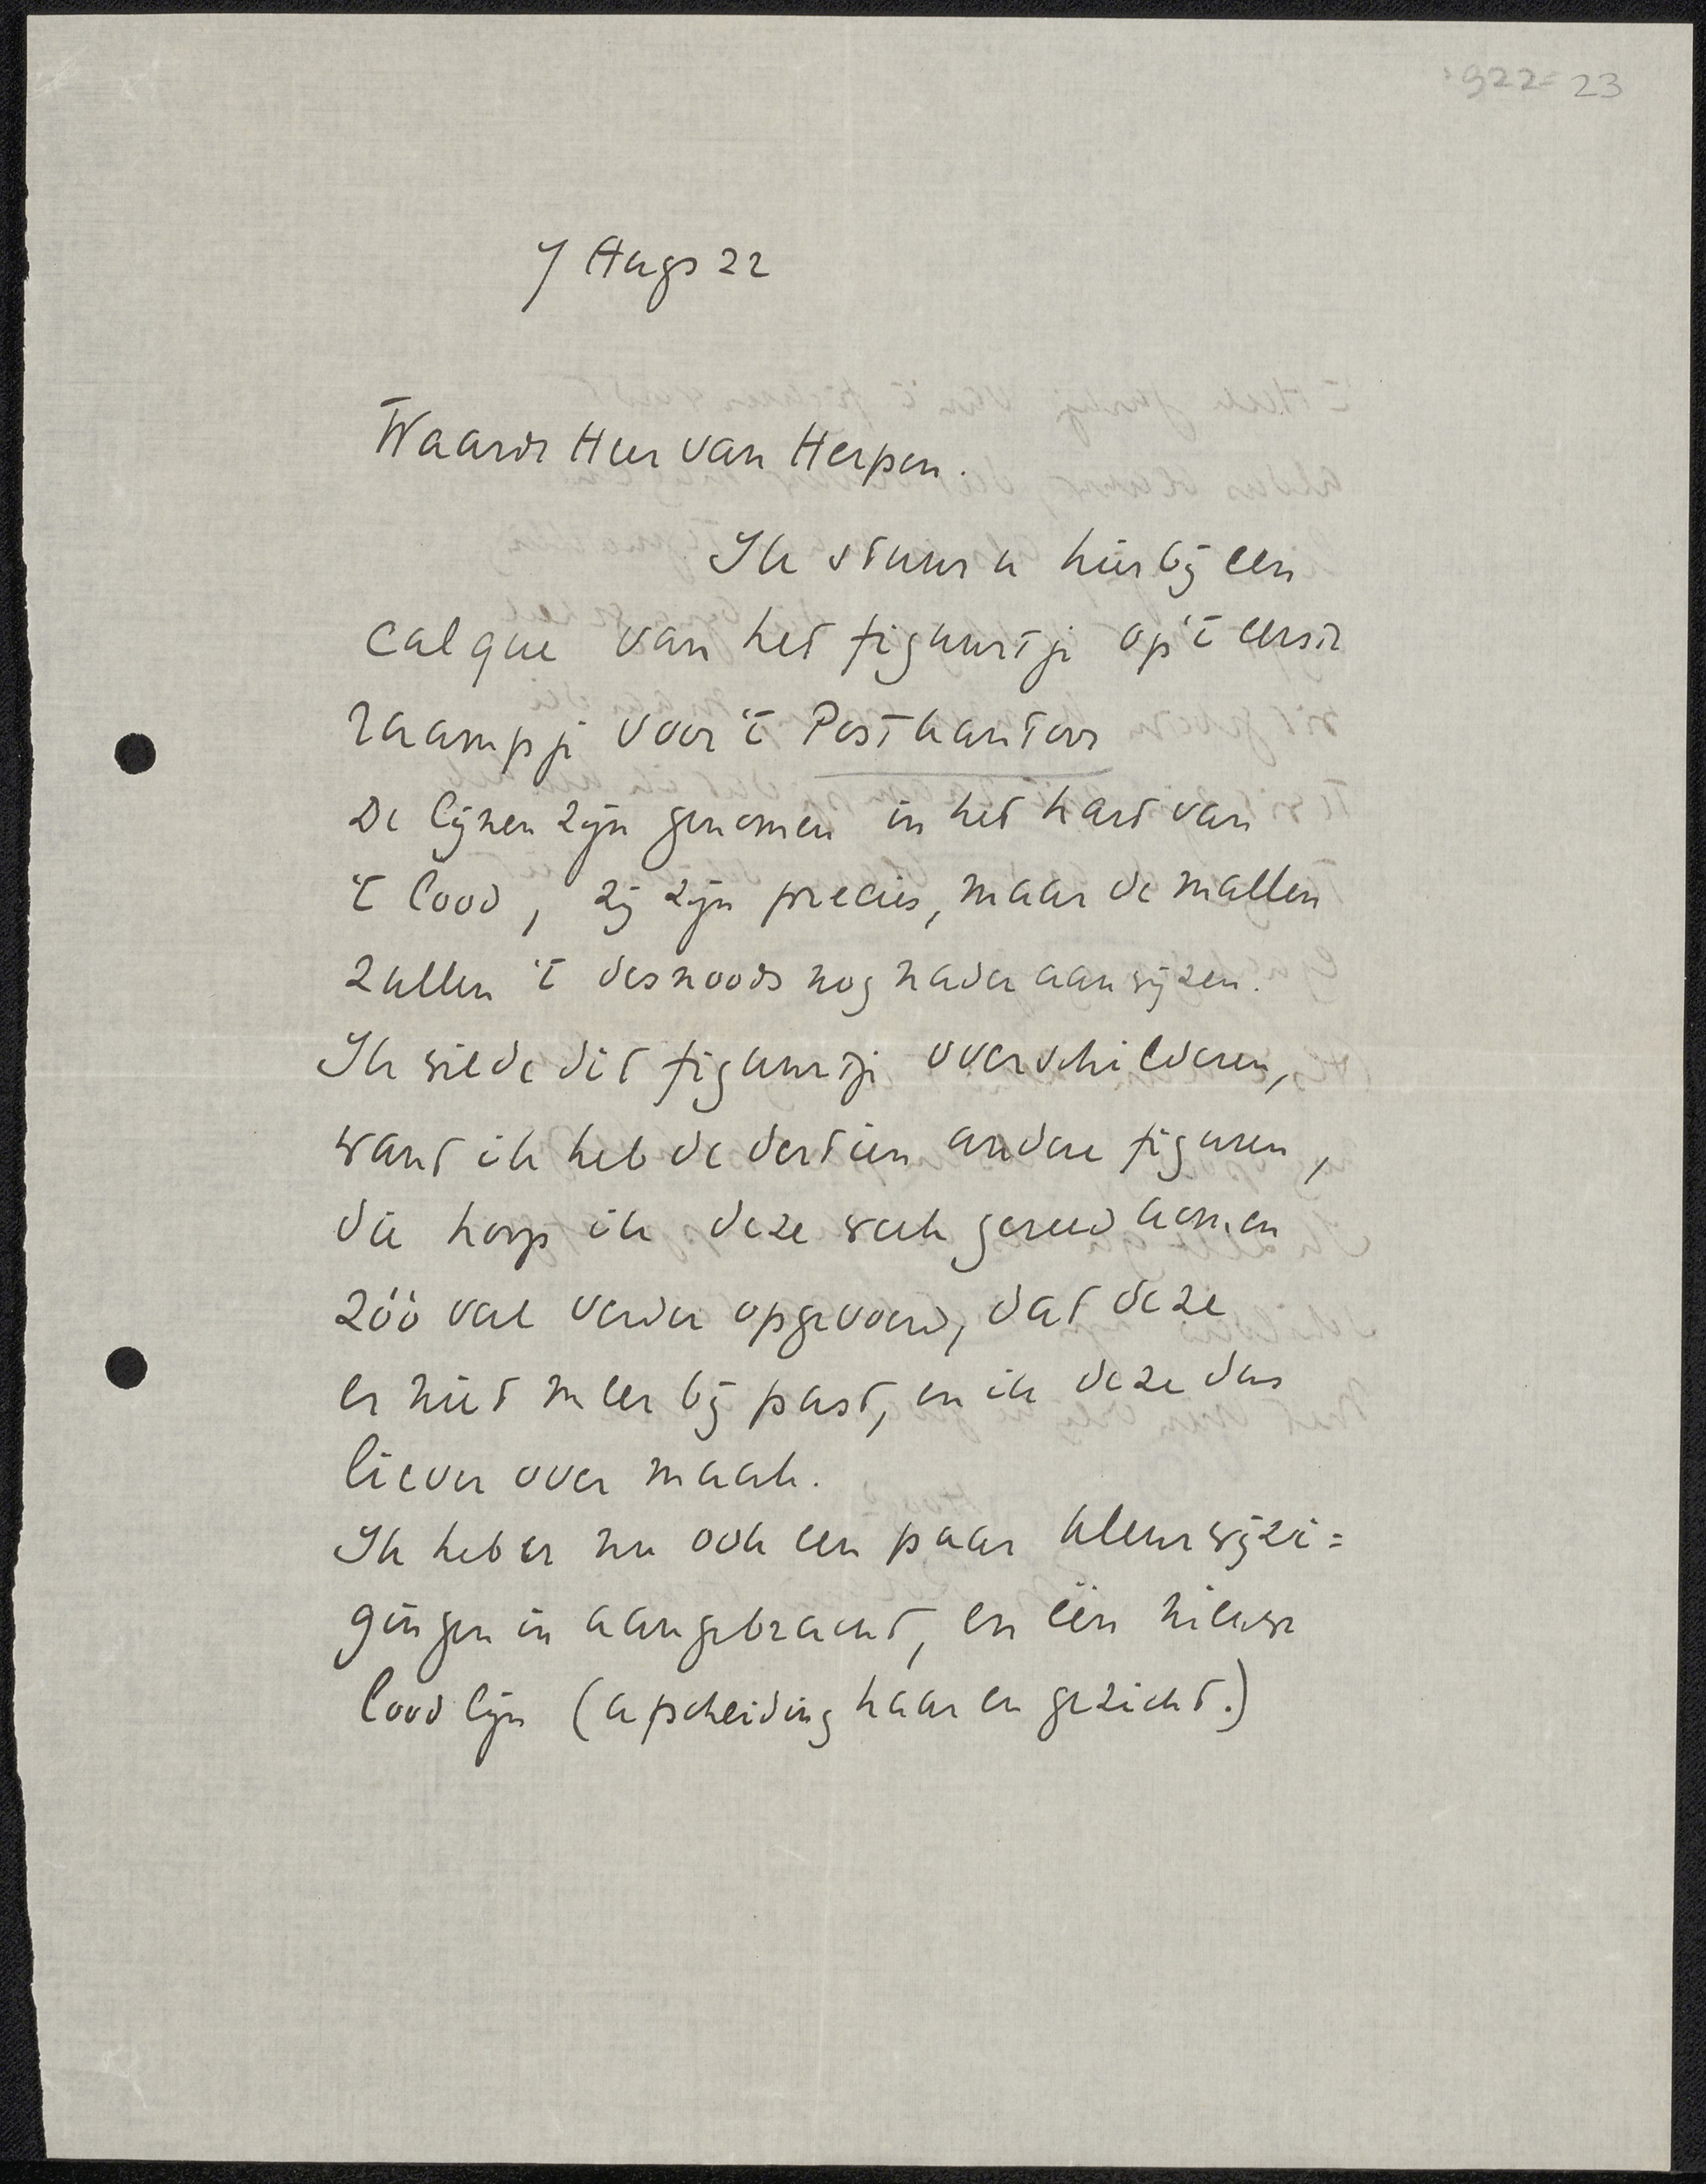 1922-23
7 Augs 22
Waarde Heer van Herpen.
Ik stuur u hierbij een
calque van het figuurtje op 't eerste
raampje voor 't Postkantoor
De lijnen zijn genomen in het hart van
't lood, zij zijn precies, maar de mallen
zullen 't desnoods nog nader aanwijzen.
Ik wilde dit figuurtje overschilderen,
want ik heb de dertien andere figuren,
die hoop ik deze week gereed komen
zóó veel verder opgevoerd, dat deze
er niet meer bij past, en ik deze dus
liever over maak.
Ik heb er nu ook een paar kleurwijzi=
gingen in aangebracht, en één nieuwe
loodlijn (afscheiding haar en gezicht.)